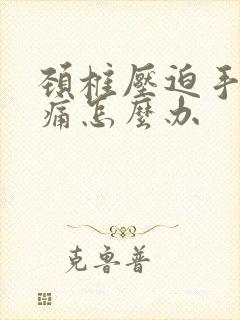 頸柱壓迫手
痛怎麼办
克鲁普